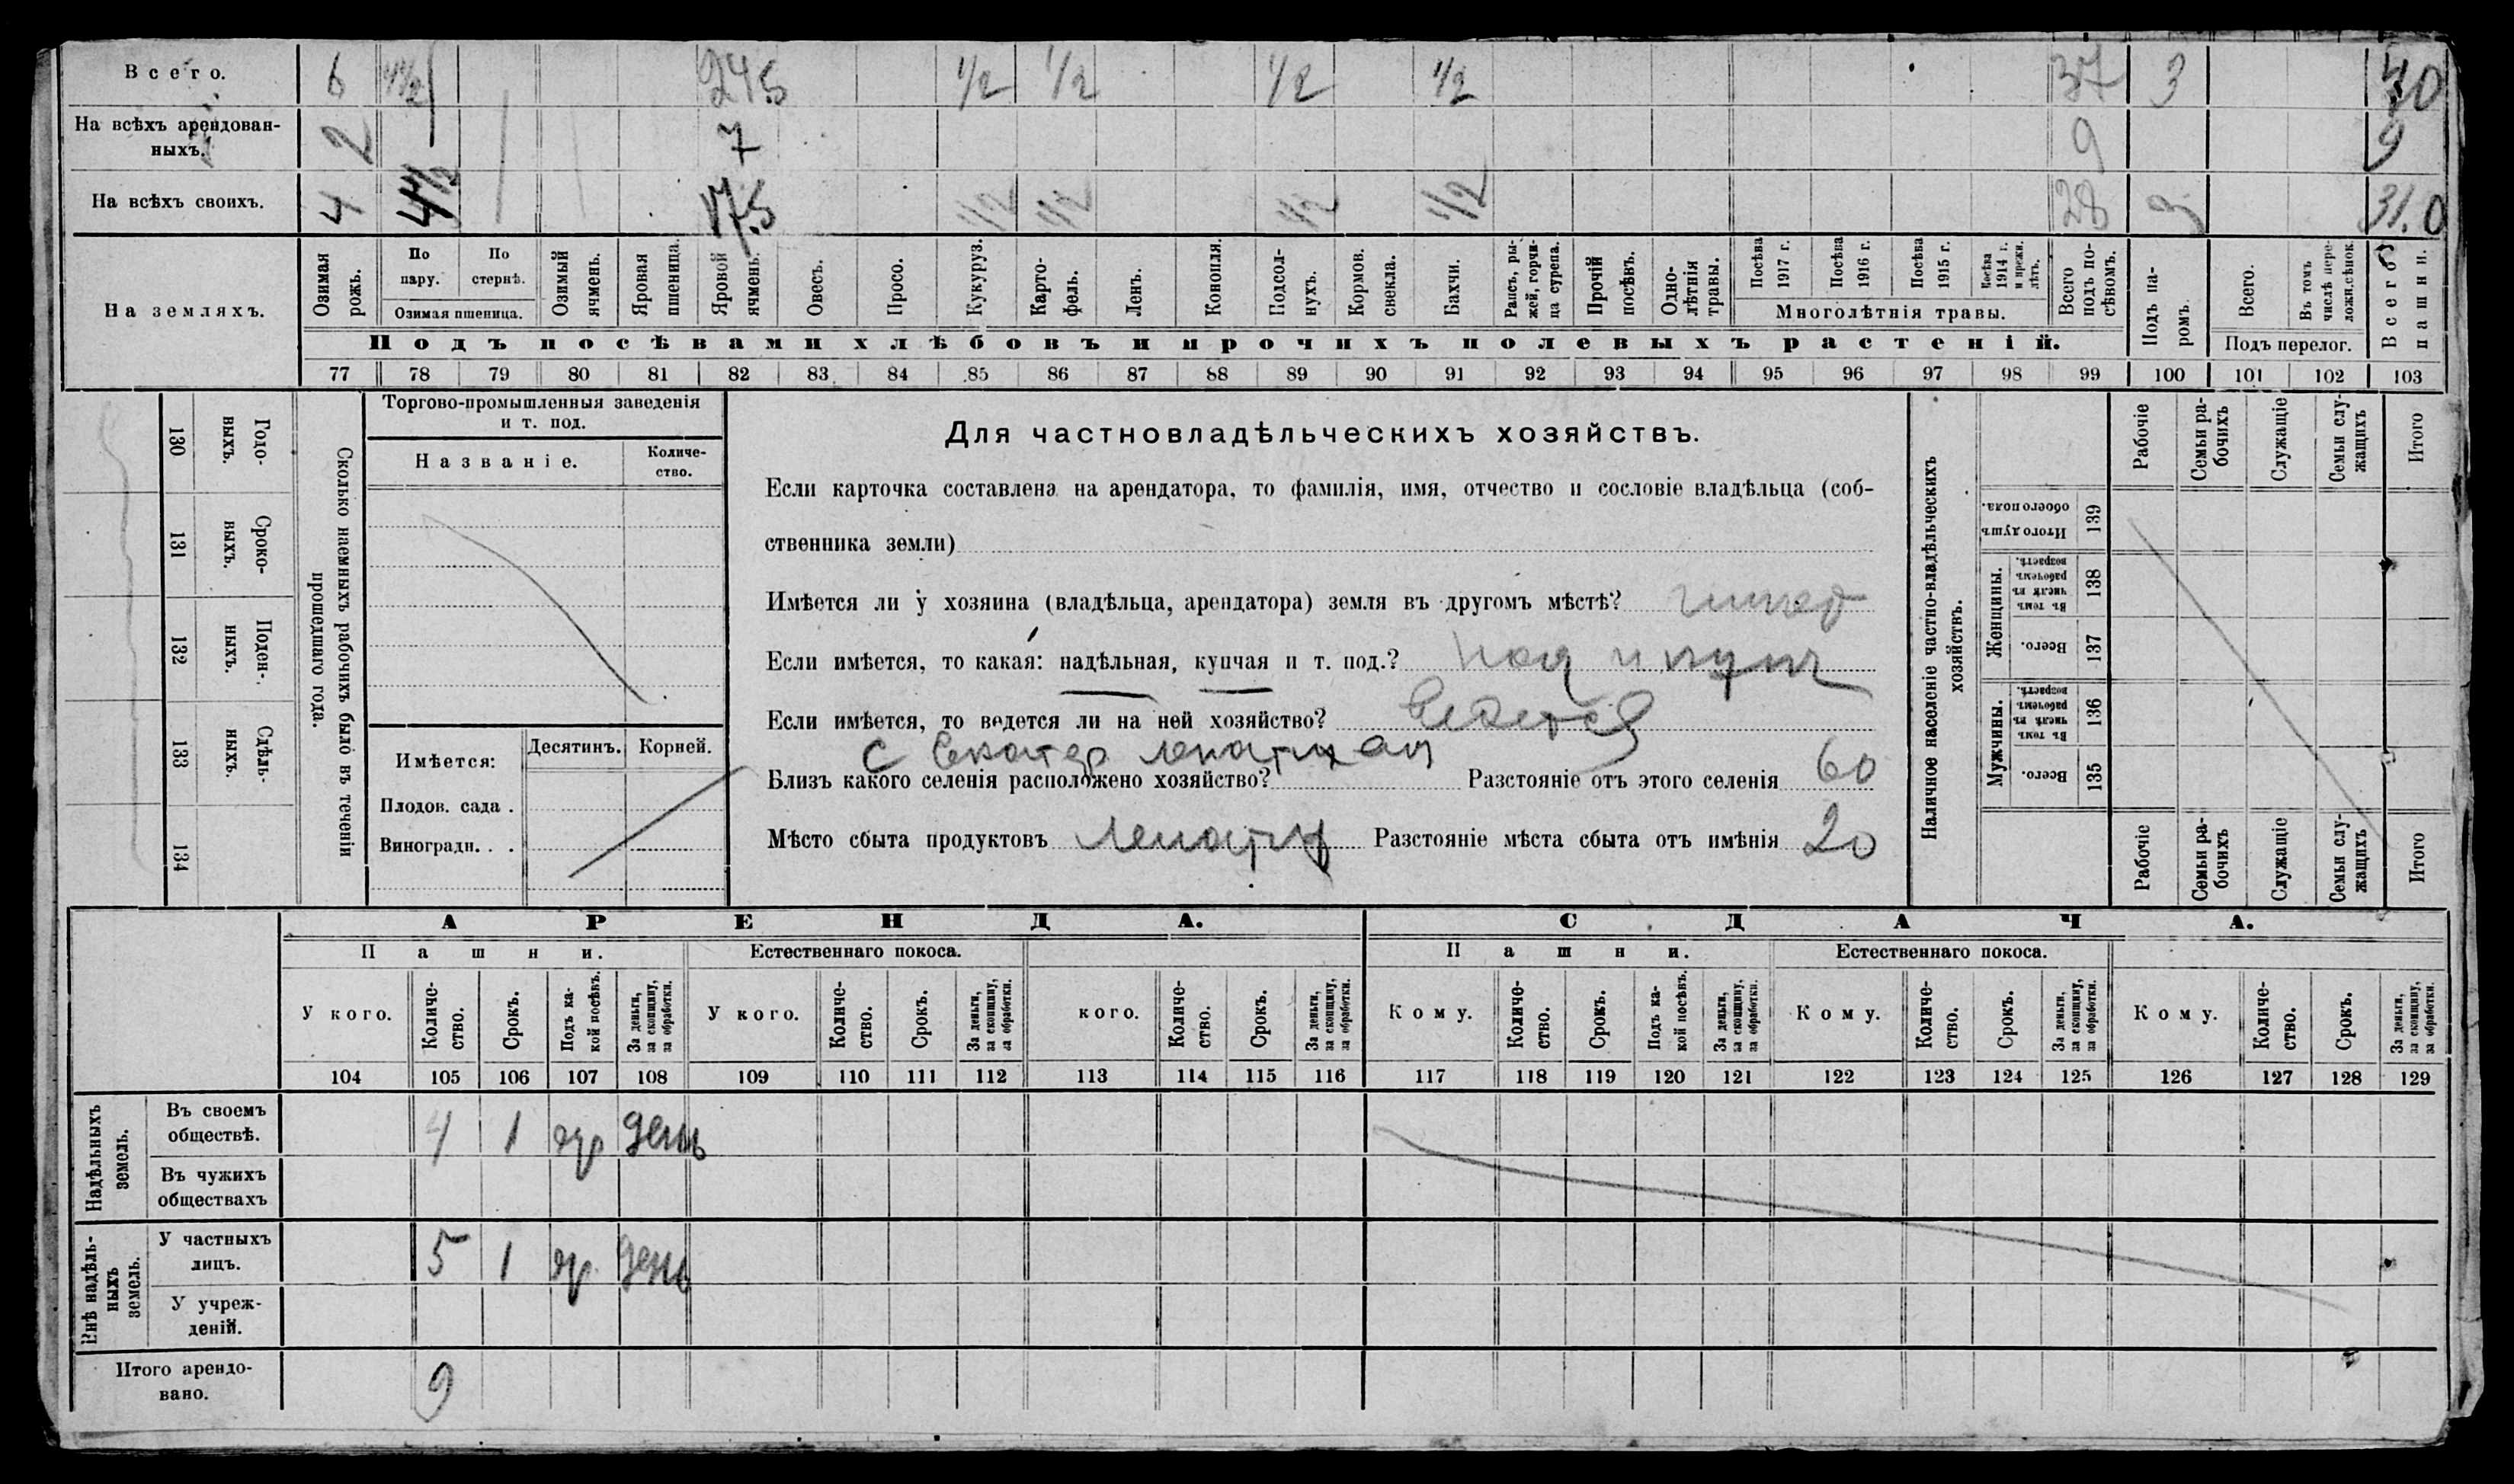 Всего. 6 4½ 24.5 ½ ½ ½ ½ 37 3 40
На всѣхъ арендован- 2 7 9 9
ныхъ.
На всѣхъ своихъ. 4 4½ 17.5 ½ ½ ½ ½ 28 3 31.0
На земляхъ.
Озимая рожь.
По пару.
По стернѣ.
Озимая пшеница.
Озимый ячмень.
Яровая пшеница.
Яровой ячмень.
Овесъ.
Просо.
Кукуруз.
Карто-
фель.
Ленъ.
Конопля.
Подсол-
нухъ.
Кормов. свекла.
Бахчи.
Рапсъ, ры-
жей, горчи-
ца сурепа.
Прочій посѣвъ.
Одно-
лѣтнія травы.
Посѣва 1917 г.
Посѣва 1916 г.
Посѣва 1915 г.
Посѣва 1914 г. и прежн. лѣтъ.
Многолѣтнія травы.
Всего подъ по-
сѣвомъ.
Подъ па-
ромъ.
Всего.
Въ томъ числѣ пере-
ложн. сѣнок.
Подъ перелог.
Всего пашни.
Подъ посѣвами хлѣбовъ и прочихъ полевыхъ растеній.
77 78 79 80 81 82 83 84 85 86 87 88 89 90 91 92 93 94 95 96 97 98 99 100 101 102 103
130 Годо-
выхъ.
131 Сроко-
ныхъ.
132 Поден-
ныхъ.
133 Сдѣль-
ныхъ.
134
Сколько наемныхъ рабочихъ было въ теченіи
прошедшаго года.
Торгово-промышленныя заведенія
и т. под.
Названіе.
Количе-
ство.
Имѣется:
Десятинъ. Корней.
Плодов. сада .
Виноградн. . .
Для частновладѣльческихъ хозяйствъ.
Если карточка составлена на арендатора, то фамилія, имя, отчество и сословіе владѣльца (соб-
ственника земли)
Имѣется ли у хозяина (владѣльца, арендатора) земля въ другомъ мѣстѣ?
Если имѣется, то какая: надѣльная, купчая и т. под.? над и купч
Если имѣется, то ведется ли на ней хозяйство? Ведется
с Екатер
Близъ какого селенія расположено хозяйство? Разстояніе отъ этого селенія 60
Мѣсто сбыта продуктовъ Разстояніе мѣста сбыта отъ имѣнія 20
Наличное населеніе частно-владѣльческихъ
хозяйствъ.
Рабочіе
Семьи ра-
бочихъ
Служащіе
Семьи слу-
жащихъ
Итого
Итого душъ обоего пола. 139
Женщины.
Въ томъ числѣ въ рабочемъ возрастѣ. 138
Всего. 137
Мужчины.
Въ томъ числѣ въ рабочемъ возрастѣ. 136
Всего. 135
Рабочіе
Семьи ра-
бочихъ
Служащіе
Семьи слу-
жащихъ
Итого
АРЕНДА. СДАЧА.
Пашни. Естественнаго покоса. Пашни. Естественнаго покоса.
У кого.
Количе-
ство.
Срокъ.
Подъ ка-
кой посѣвъ.
За деньги, за скопщину, за обработки.
У кого.
Количе-
ство.
Срокъ.
За деньги, за скопщину, за обработки.
кого.
Количе-
ство.
Срокъ.
За деньги, за скопщину, за обработки.
Кому.
Количе-
ство.
Срокъ.
Подъ ка-
кой посѣвъ.
За деньги, за скопщину, за обработки.
Кому.
Количе-
ство.
Срокъ.
За деньги, за скопщину, за обработки.
Кому.
Количе-
ство.
Срокъ.
За деньги, за скопщину, за обработки.
104 105 106 107 108 109 110 111 112 113 114 115 116 117 118 119 120 121 122 123 124 125 126 127 128 129
Надѣльныхъ земель.
Въ своемъ
обществѣ. 4 1 яр день
Въ чужихъ
обществахъ
Внѣ надѣль-
ныхъ земель.
У частныхъ
лицъ. 5 1 яр день
У учреж-
деній.
Итого арендо-
вано. 9